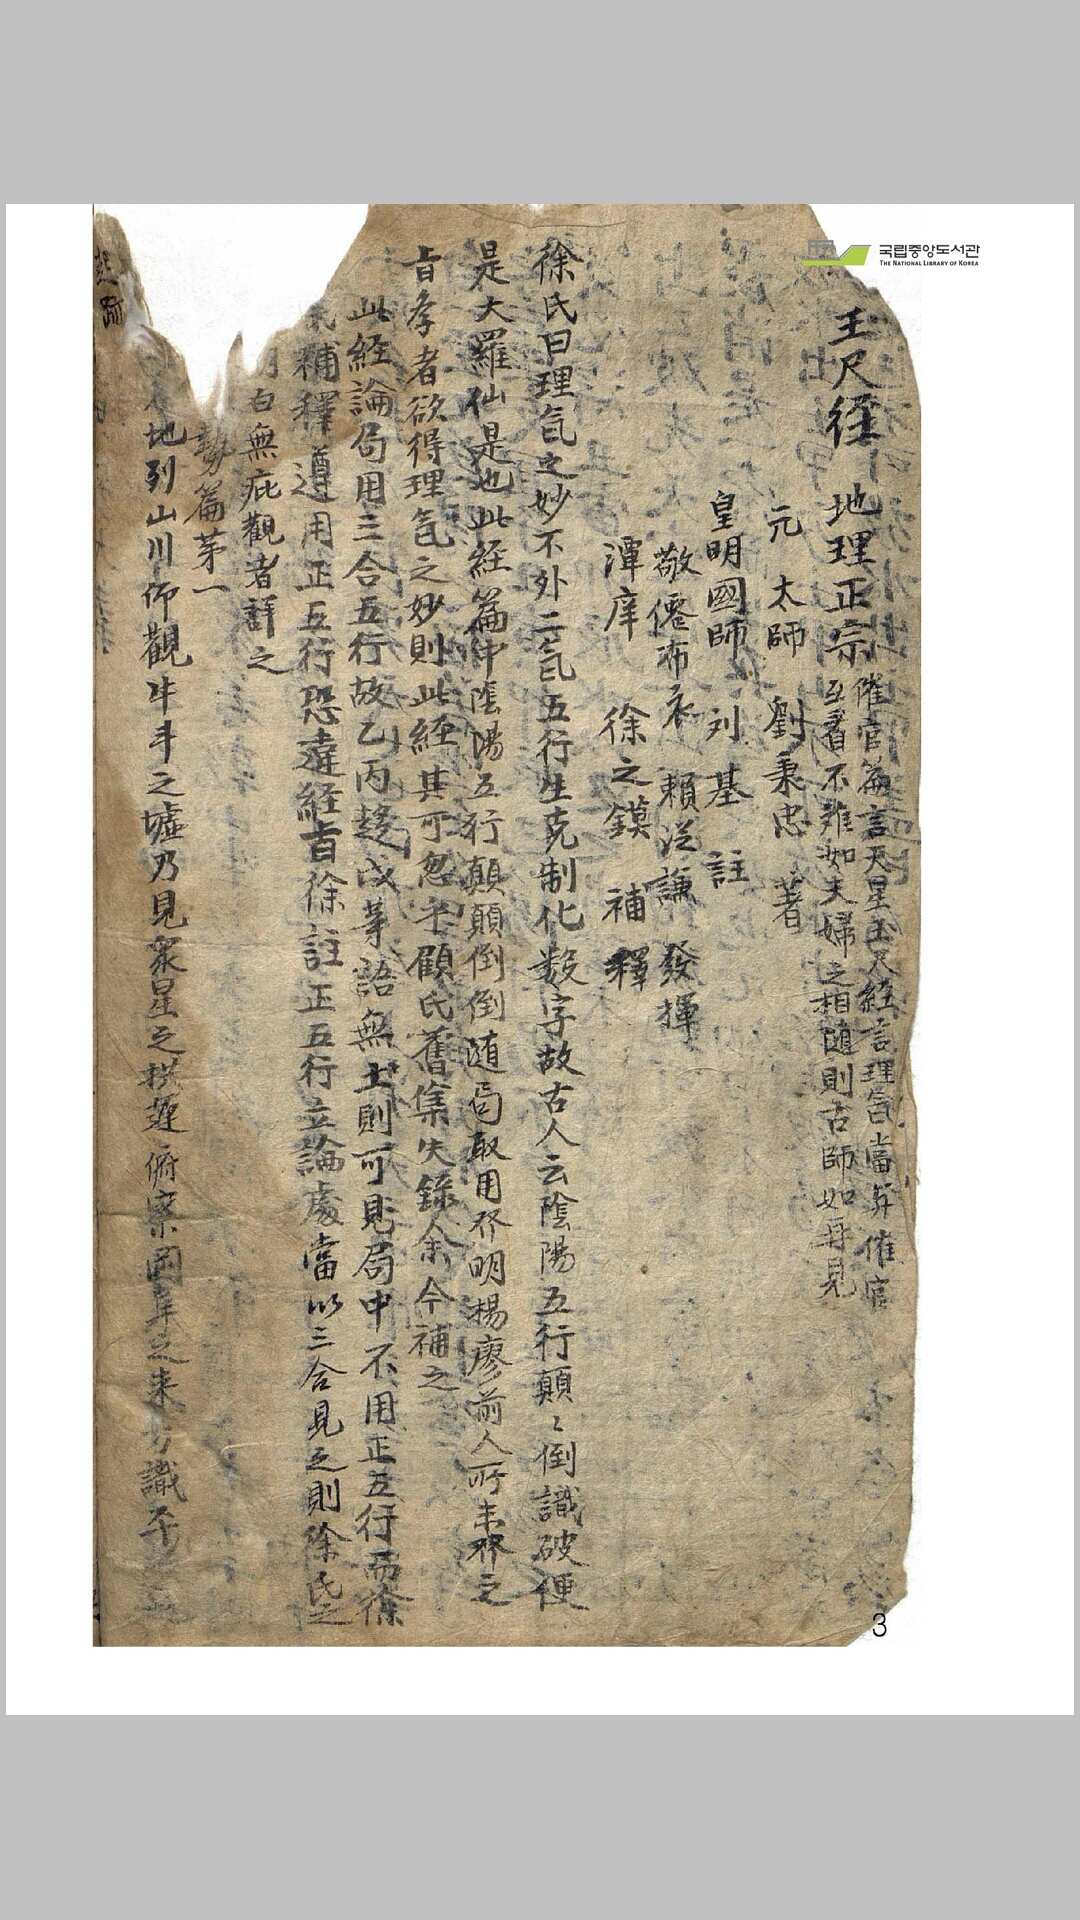 国립중앙도서관
THE NATIONAL LIBRARY OF KOREA
玉尺徑 地理正宗 催官篇言天星玉尺経言理氣當與催官
互看不離如夫婦之相随則古師如再見
元 太師 劉秉忠 著
皇明國師 刘基 註
敬僊布衣 賴從謙 發揮
潭庠 徐之鏌 補釋
徐氏曰理气之妙不外二気五行生克制化数字故古人云陰陽五行顛〻倒識破便
是大羅仙是也此経篇中陰陽五行顛顛倒倒随局取用發明楊廖前人所未發之
旨孝者欲得理氣之妙則此経其可忽乎顧氏舊集失錄余今補之
此経論局用三合五行故乙丙趍戌等語無土則可見局中不用正五行而徐
補釋遵用正五行恐違経旨徐註正五行立論處當以三合見之則徐氏之
白無疵觀者詳之
勢篇第一
地列山川仰觀牛斗之墟乃見衆星之拱遲俯察岡阜之来方識
3